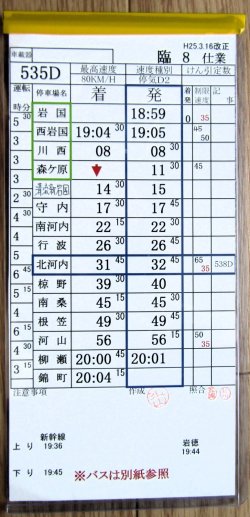 H25.3.16改正
車載器
臨 8 仕業
535D
最高速度 80KM/H
速度種別 停気D2
けん引定数
運転時分
停車場名
着
発
着発
制限速度
記事
岩国 18:59
0 35
5 30
西岩国 19:04 30 19:05
45 50
3
川西 08 08 30
3
森ケ原 ↓ 11 30
45
14 30 15
2
守内 17 17 30
南河内 22 15 22 30
行波 26 26 45
北河内 31 45 32 45
65 35 538D
椋野 39 30 40
南桑 45 45 15
根笠 49 49 30
河山 56 56 15
50 35
柳瀬 20:00 45 20:01
3 15
錦町 20:04 15
注意事項
作成
照合
新幹線
上り 19:36
岩徳
19:44
下り 19:45
※バスは別紙参照